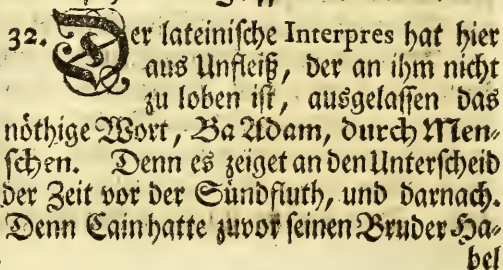 32. Der lateinische Interpres hat hier
aus Unfleiß, der an ihm nicht
zu loben ist, ausgelassen das
nöthige Wort, Ba Adam, durch Men-
schen. Denn es zeiget an den Unterscheid
der Zeit vor der Sündfluth, und darnach.
Denn Cain hatte zuvor seinen Bruder Ha-
bel